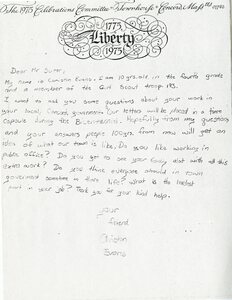 The 1975 Celebrations Committee Townhouse Concord Massᵗᵗˢ
1775
Liberty
1975
Dear Mr
My name is Christon Evans. I am 10 yrs. old in the fourth grade
and a member of the Girl Scout troop
I want to ask you some questions about your work in
your local Concord government. Our letters will be placed in a time
capsule during the Bicentennial. Hopefully from my questions
and your answers people 100yrs. from now will get an
idea of what our town is like. Do you like working in
public office? Do you get to see your family alot with all this
extra work? Do you think everyone should in town
government sometime in there life? What is the hardest
part in your job? Thank you for your kind help.
your
friend
Evans